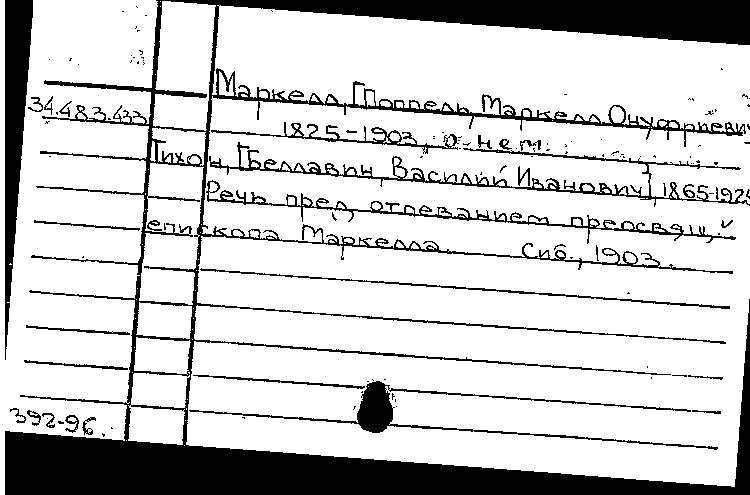 Маркелл, [Поппель, Маркелл Онуфриевич
34.483.433
1825-1903, о нем.
Тихон, [Беллавин, Василий Иванович], 1865-1925
Речь пред отпеванием преосвящ.
епископа Маркелла. Спб., 1903.
392-96.